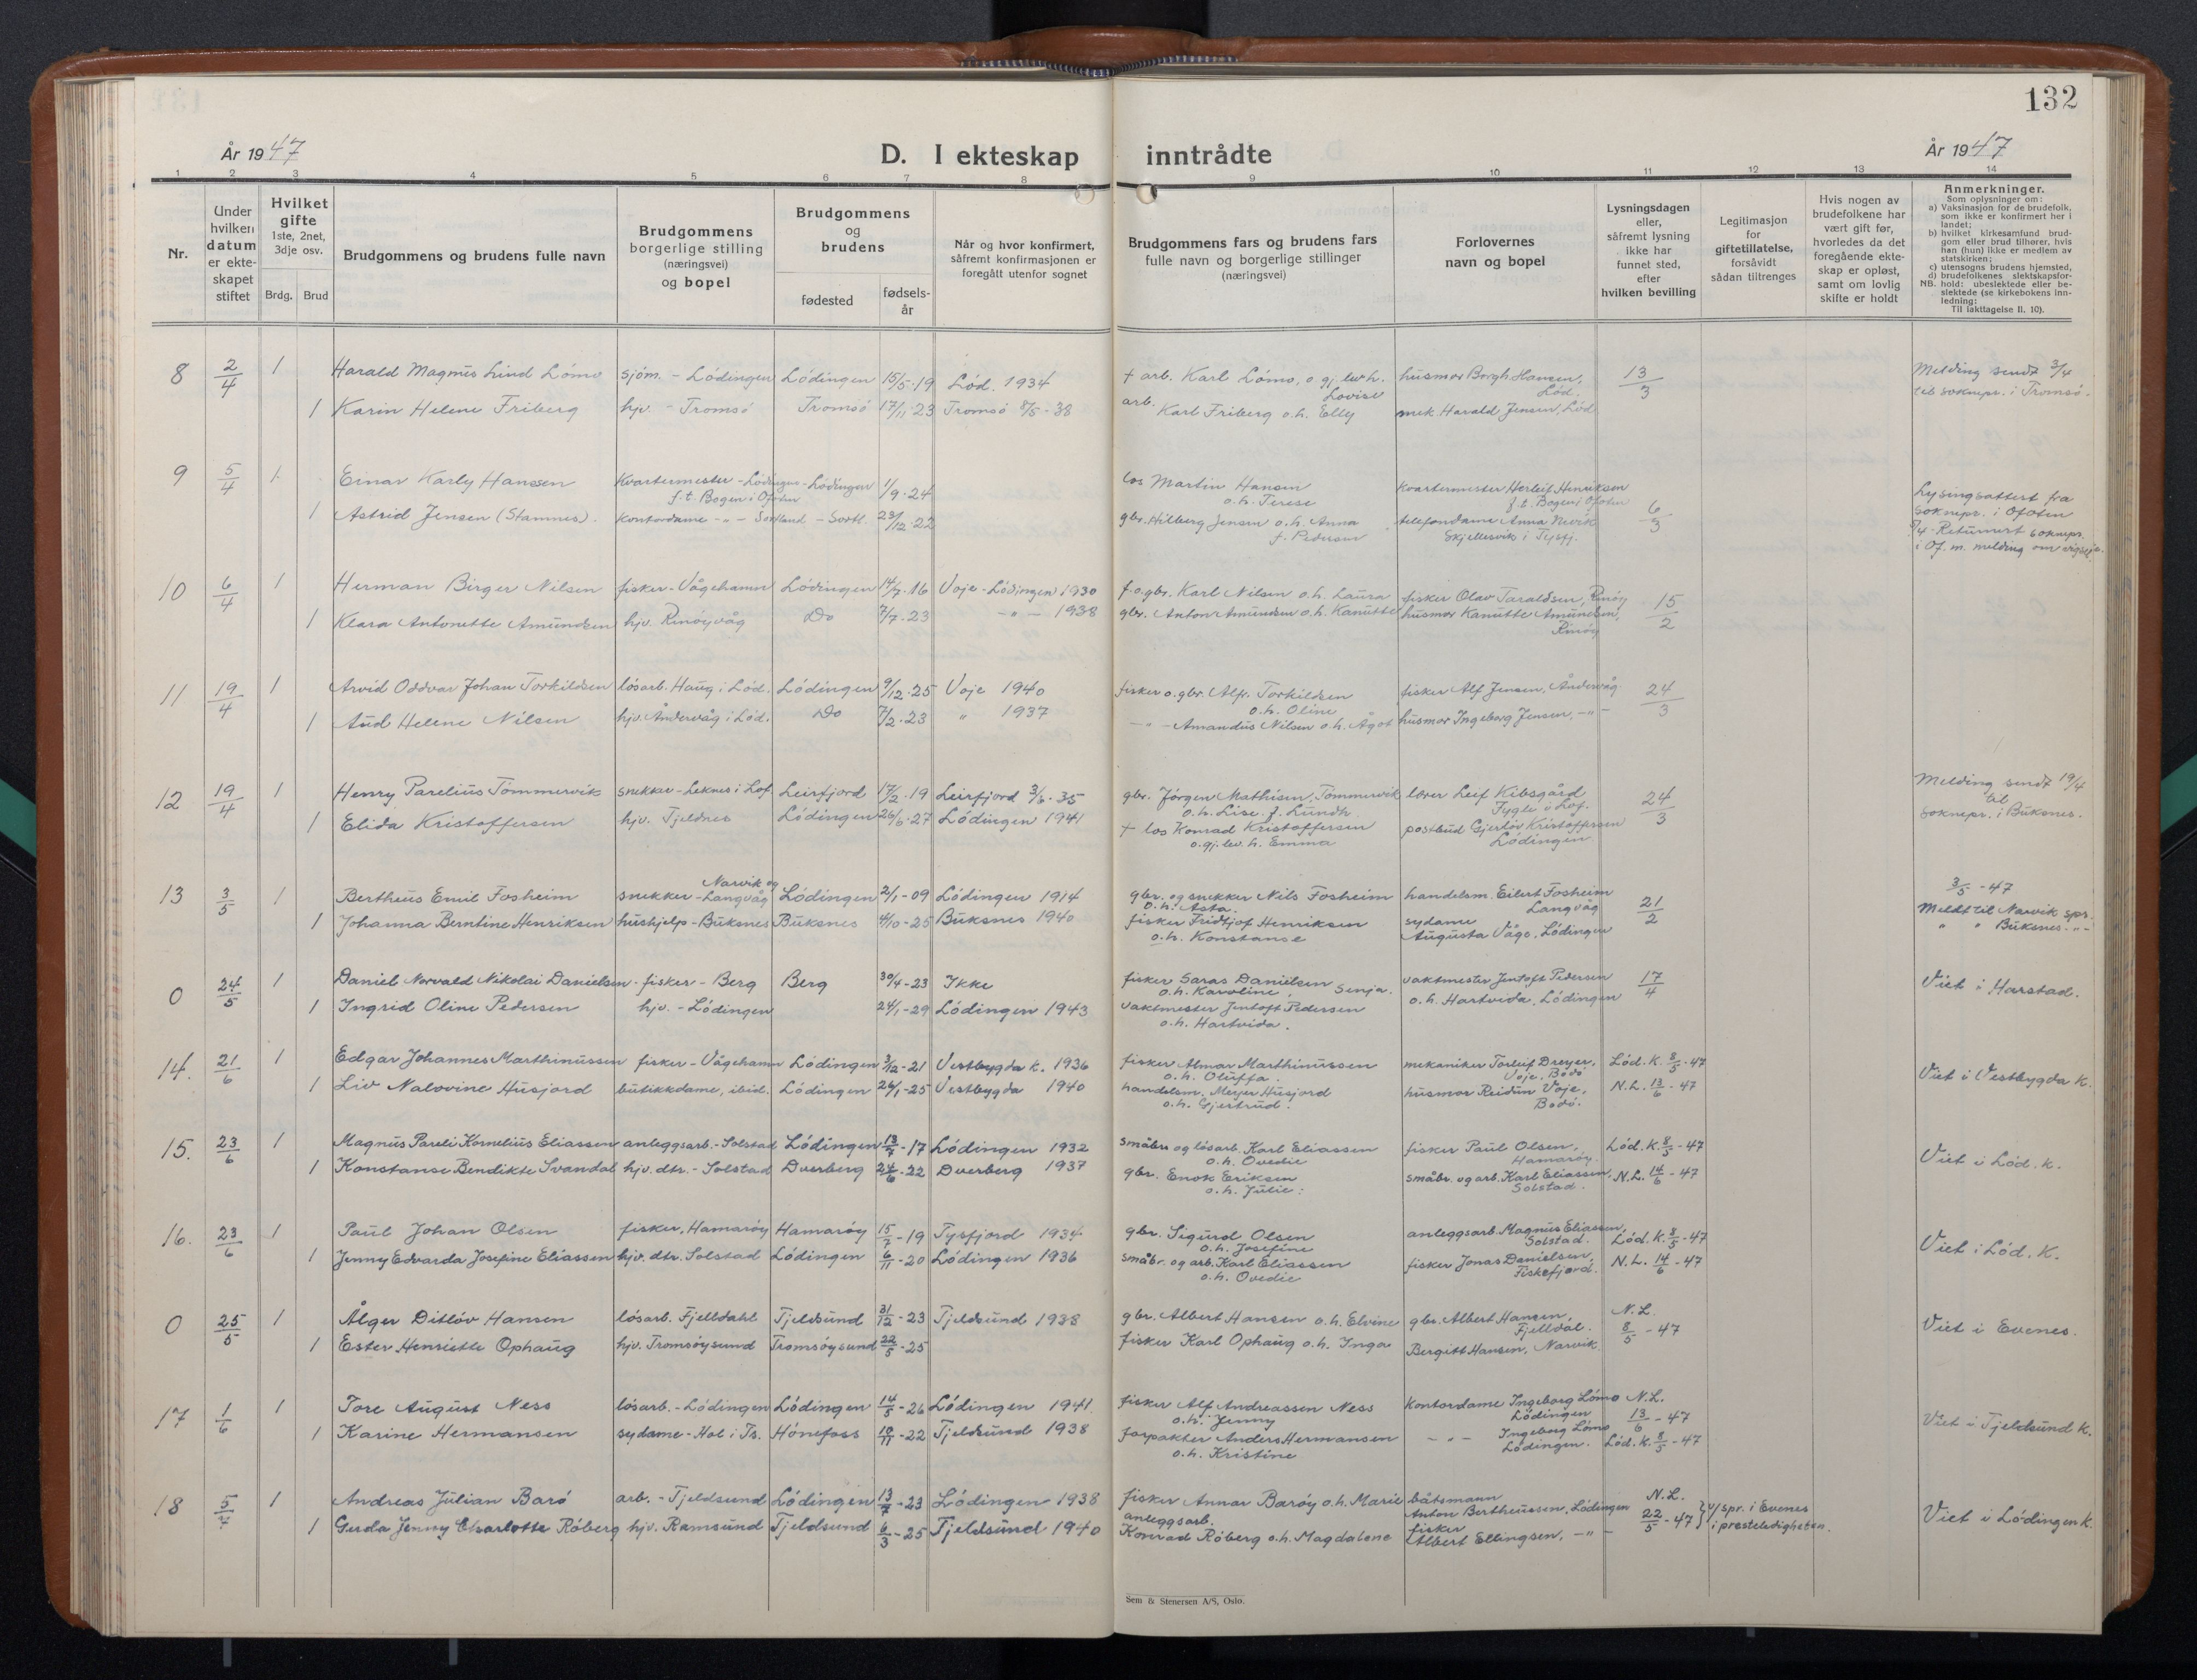 132
År 1947
D. I ekteskap inntrådte
År 1947
1 2 3 4 5 6 7 8 9 10 11 12 13 14
Nr.
Under hvilken datum er ekteskapet stiftet
Hvilket gifte 1ste, 2net, 3dje osv.
Brdg. Brud
Brudgommens og brudens fulle navn
Brudgommens borgerlige stilling (næringsvei) og bopel
Brudgommens og brudens
fødested
fødsels-år
Når og hvor konfirmert, såfremt konfirmasjonen er foregått utenfor sognet
Brudgommens fars og brudens fars fulle navn og borgerlige stillinger (næringsvei)
Forlovernes navn og bopel
Lysningsdagen eller, såfremt lysning ikke har funnet sted, efter hvilken bevilling
Legitimasjon for giftetillatelse, forsåvidt sådan tiltrenges
Hvis nogen av brudefolkene har vært gift før, hvorledes da det foregående ekteskap er opløst, samt om lovlig skifte er holdt
Anmerkninger.
Som oplysninger om:
a) Vaksinasjon for de brudefolk, som ikke er konfirmert her i landet;
b) hvilket kirkesamfund brudgom eller brud tilhører, hvis han (hun) ikke er medlem av statskirken;
c) utensogns brudens hjemsted,
d) brudefolkenes slektskapsforhold: ubeslektede eller beslektede (se kirkebokens innledning:
NB. Til iakttagelse II. 10).
8 2/4 1 Harald Magnus Lind Lömo sjöm. - Lödingen Lödingen 15/5-19 Löd. 1934 + arb. Karl Lömo, o gj. lev h. Lovise husmor Borgh Hansen, Löd. 13/3 Melding sendt 3/4
1 Karin Helene Friberg hjv. - Tromsö Tromsö 17/11-23 Tromsö 8/5-38 arb. Karl Friberg o.h. Elly mek. Harald Jensen, Löd til soknepr. i Tromsö.
9 5/4 1 Einar Karly Hanssen Kvartermester - Lödingen - Lödingen 1/9-24 los Martin Hansen o.h. Terese Kvartermester Herleif Henriksen f.t. Bogen i Ofoten 6/3 Lysingsattest fra soknepr. i Ofoten
f.t. Bogen i Ofoten
1 Astrid Jensen (Stamnes). Kontordame -"- Sortland - Sortl. 23/12-22 gbr. Hilberg Jensen o.h. Anna f. Pedersen telefondame Anna Nevik Skjellesvik i Tysfj. - Returnert soknepr. i Of. m. melding om
10 6/4 1 Herman Birger Nilsen fisker - Vågehamn Lödingen 14/7-16 Voje - Lödingen 1930 f.o.gbr. Karl Nilsen o.h. Laura fisker Olav Taraldsen, Rinöy 15/2
1 Klara Antonette Amundsen hjv. Rinöyvåg Do 7/7-23 -"- 1938 gbr. Anton Amundsen o.h. Kanutte husmor Kanutte Amundsen, Rinöy
11 19/4 1 Arvid Oddvar Johan Torkildsen lösarb. Haug i Löd. Lödingen 9/12-25 Voje 1940 fisker o. gbr. Alfr. Torkildsen o.h. Oline fisker Alf Jensen, Åndervåg 24/3
1 Aud Helene Nilsen hjv. Åndervåg i Löd. Do 7/2-23 " 1937 -"- Amandus Nilsen o.h. Ågot husmor Ingeborg Jensen, -"-
12 19/4 1 Henry Parelius Tömmervik snekker - Leknes i Lof. Leirfjord 17/2-19 Leirfjord 3/6-35 gbr. Jörgen Mathisen, Tömmervik o.h. Lise f. Lundh. lærer Leif Kibsgård Fygle i Lof. 24/3 Melding sendt 19/4 til
1 Elida Kristoffersen hjv. Tjeldnes Lödingen 26/6-27 Lödingen 1941 + los Konrad Kristoffersen o.gj. lev. h. Emma postbud Gjertöv Kristoffersen Lödingen soknepr. i Buksnes.
13 3/5 1 Bertheus Emil Fosheim snekker Narvik og - Langvåg Lödingen 2/1-09 Lödingen 1914 gbr. og snekker Nils Fosheim o.h. Asta handelsm. Eilert Fosheim Langvåg 21/2 3/5-47
1 Johanna Berntine Henriksen hushjelp - Buksnes Buksnes 4/10-25 Buksnes 1940 fisker Fridtjof Henriksen o.h. Konstanse sydame Augusta Våge, Lödingen Meldt til Narvik spr. " " Buksnes -"-
0 24/5 1 Daniel Norvald Nikolai Danielsen - fisker - Berg Berg 30/4-23 Ikke fisker Saras Danielsen o.h. Karoline, Senja. vaktmester Jentoft Pedersen 17/4 Viet i Harstad.
1 Ingrid Oline Pedersen hjv. - Lödingen 24/1-29 Lödingen 1943 vaktmester Jentoft Pedersen o.h. Hartvida. o.h. Hartvida, Lödingen
14. 21/6 1 Edgar Johannes Marthinussen fisker - Vågehamn Lödingen 3/12-21 Vestbygda k. 1936 fisker Almar Marthinussen o.h. Oluffa. mekaniker Torleif Dreyer, Voje, Bodö Löd. K. 8/5-47 Viet i Vestbygda K.
1 Liv Nalovine Husjord butikkdame, ibid. Lödingen 26/1-25 Vestbygda 1940 handelsm. Meyer Husjord o.h. Gjertrud. husmor Reidun Voje, Bodö. N.L. 13/6-47
15. 23/6 1 Magnus Pareli Kornelius Eliassen anleggsarb. - Solstad Lödingen 13/7-17 Lödingen 1932 småbr. og lösarb. Karl Eliassen o.h. Ovedie fisker Paul Olsen, Hamaröy. Löd. K. 8/5-47 Viet i Löd. k.
1 Konstanse Bendikte Svandal hjv. dtr. - Solstad Dverberg 24/6-22 Dverberg 1937 gbr. Enok Eriksen o.h. Julie: småbr. og arb. Karl Eliassen, Solstad. N.L. 14/6-47
16. 23/6 1 Paul Johan Olsen fisker, Hamaröy Hamaröy 15/7-19 Tysfjord 1934 gbr. Sigurd Olsen o.h. Josefine anleggsarb. Magnus Eliassen, Solstad. Löd. K. 8/5-47 Viet i Löd. K.
1 Jenny Edvarda Josefine Eliassen hjv. dtr. Solstad Lödingen 6/11-20 Lödingen 1936 småbr. og arb. Karl Eliassen o.h. Ovedie fisker Jonas Danielsen, Fiskefjord. N.L. 14/6-47
0 25/5 1 Ålger Ditlöv Hansen lösarb. Fjelldahl Tjeldsund 31/12-23 Tjeldsund 1938 gbr. Albert Hansen o.h. Elvine gbr. Albert Hansen, Fjelldal. N.L. 8/5-47 Viet i Evenes.
1 Ester Henriette Ophaug hjv. Tromsöysund Tromsöysund 22/5-25 fisker Karl Ophaug o.h. Inga Bergitt Hansen, Narvik.
17 1/6 1 Tore August Ness lösarb. - Lödingen Lödingen 14/5-26 Lödingen 1941 fisker Alf Andreassen Ness o.h. Jenny Kontordame Ingeborg Lömo Lödingen N.L. 13/6-47 Viet i Tjeldsund K.
1 Karine Hermansen sydame - Hol i Ts. Hönefoss 10/11-22 Tjeldsund 1938 forpakter Anders Hermansen o.h. Kristine -"- Ingeborg Lömo Lödingen. Löd. K. 8/5-47
18 5/7 1 Andreas Julian Barö arb. - Tjeldsund Lödingen 13/7-23 Lödingen 1938 fisker Annar Baröy o.h. Marie båtsmann Anton Bertheussen, Lödingen N.L. 22/5-47 } v/spr. i Evenes i presteledigheten. Viet i Lödingen k.
1 Gerda Jenny Charlotte Röberg hjv. Ramsund Tjeldsund 6/3-25 Tjeldsund 1940 anleggsarb. Konrad Röberg o.h. Magdalene fisker Albert Ellingsen, -"-
Sem & Stenersen A/S, Oslo.